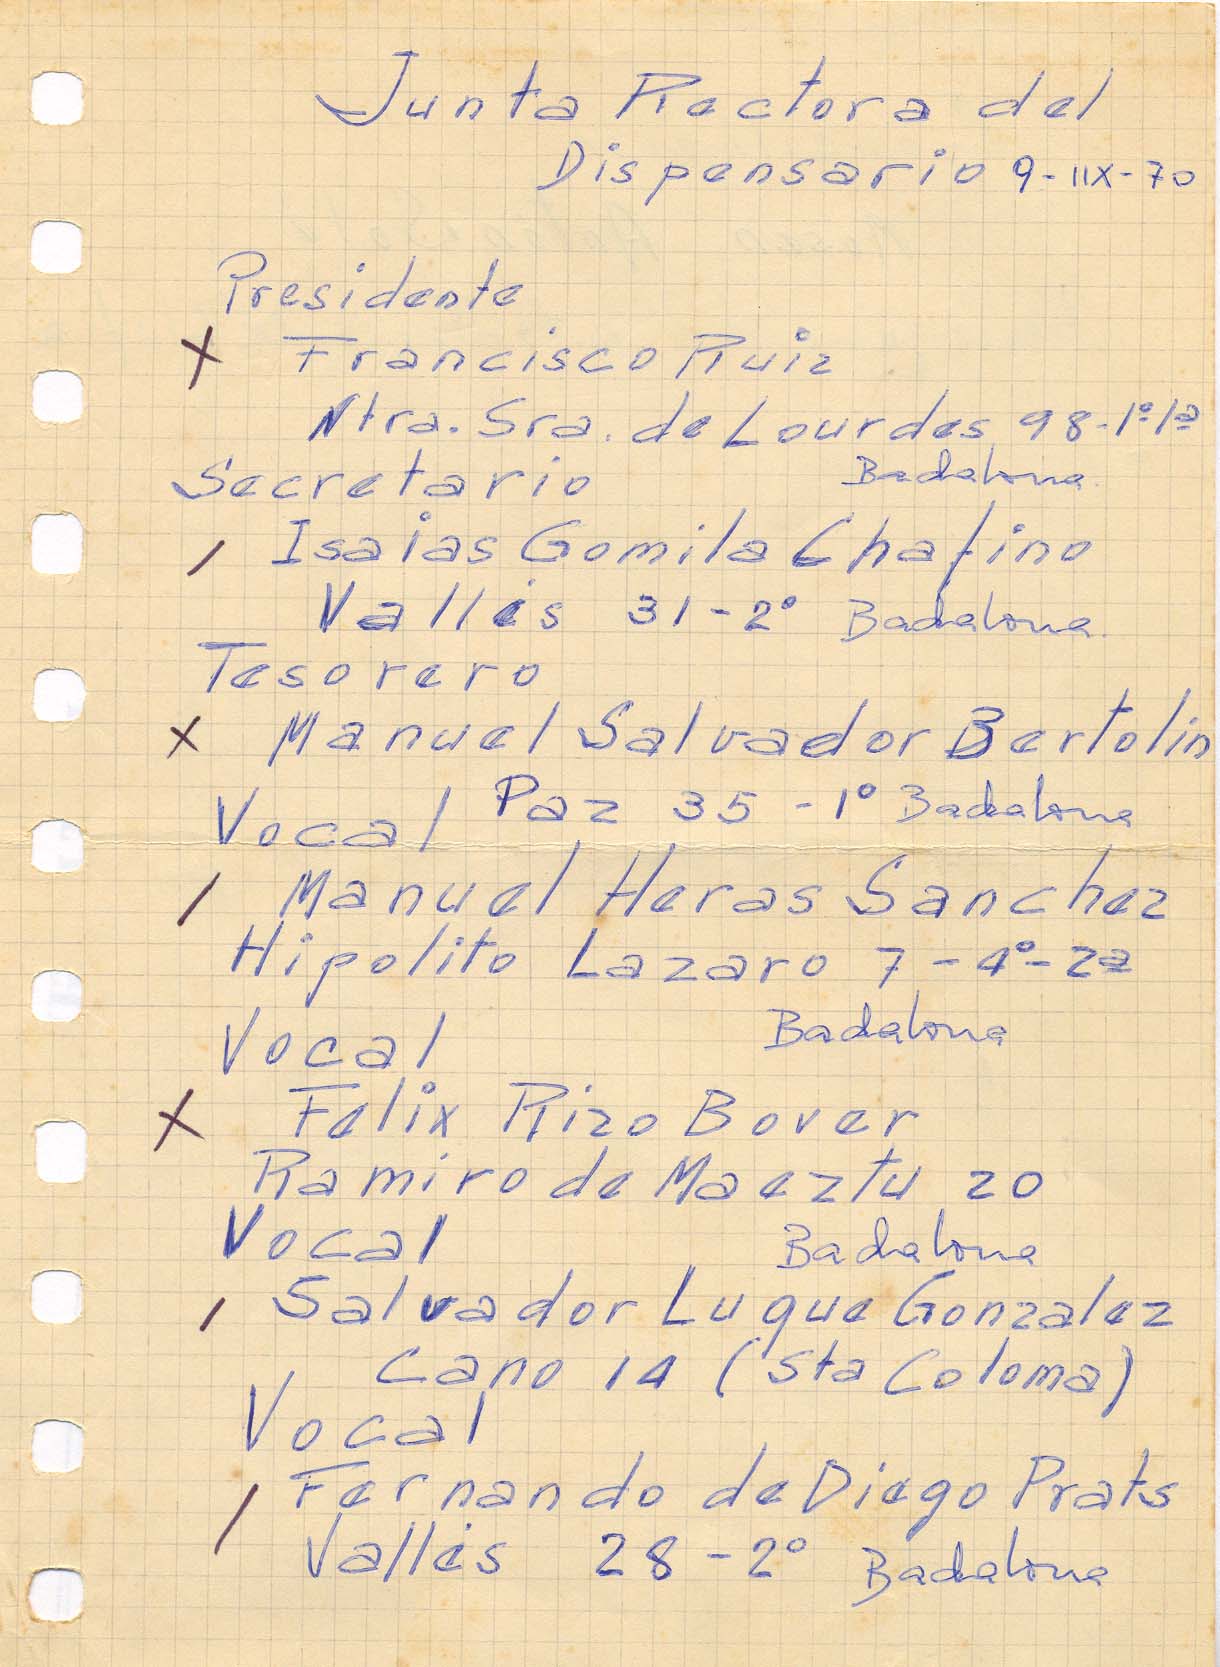 Junta Rectora del
Dispensario 9-IIX-70
Presidente
x Francisco Ruiz
Ntra. Sra. de Lourdes 98-1º1ª
Badalona
Secretario
/ Isaias Gomila Chafino
Vallés 31-2º Badalona
Tesorero
x Manuel Salvador Bertolin
Paz 35-1º Badalona
Vocal
/ Manuel Heras Sanchez
Hipolito Lazaro 7-4º-2ª
Badalona
Vocal
x Felix Rizo Bover
Ramiro de Maeztu 20
Badalona
Vocal
/ Salvador Luque Gonzalez
Cano 14 (Sta Coloma)
Vocal
/ Fernando de Diego Prats
Vallés 28-2º Badalona